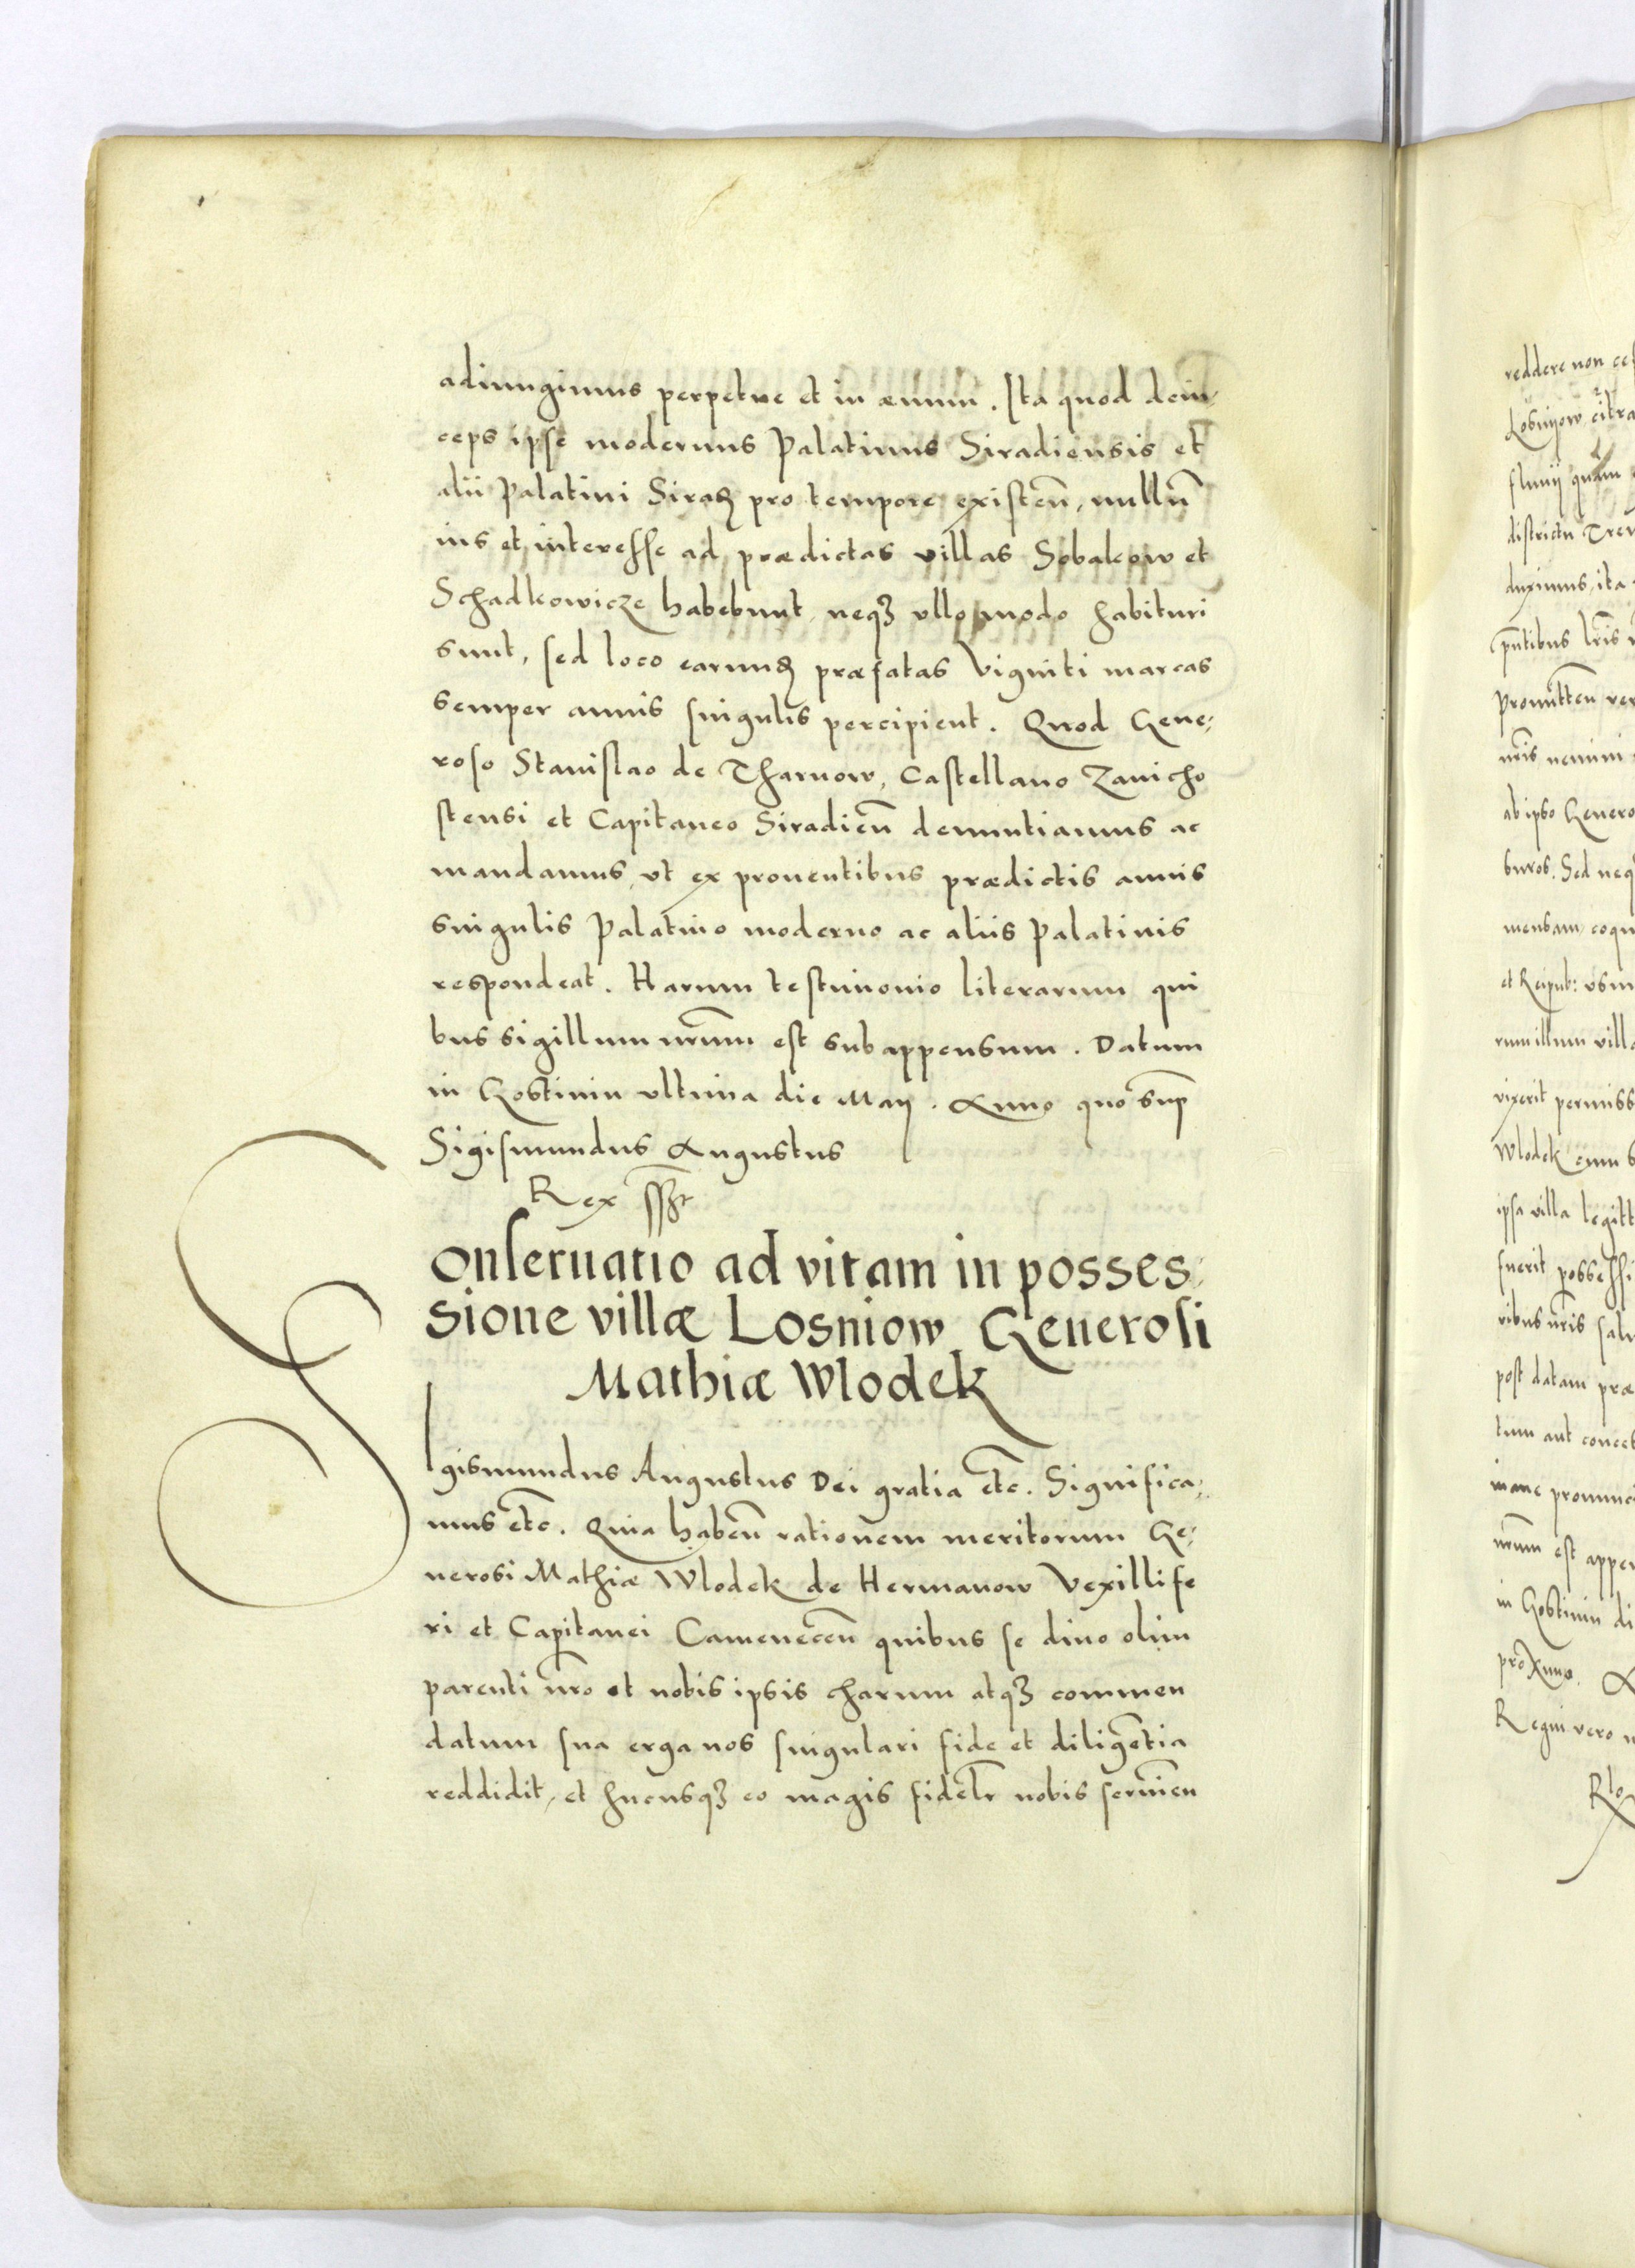 adiungimus perpetue et in æuum. Ita quod dein-
ceps ipse modernus Palatinus Siradiensis et
alii Palatini Sirad pro tempore existeñ, nullũ
ius et interesse ad prædictas villas Sobakow et
Schadkowicze habebunt, neqꝫ vllo modo habituri
sunt, sed loco earund præfatas Viginti marcas
semper annis singulis percipient. Quod Gene-
roso Stanislao de Tharnow, Castellano Zawicho
stensi et Capitaneo Siradieñ denuntiamus ac
mandamus, vt ex prouentibus prædictis annis
singulis Palatino moderno ac aliis Palatinis
respondeat. Harum testimonio literarum qui
bus sigillum nr̃um est subappensum. Datum
in Gostinin vltima die Maij. Anno quo sup̃
Sigismundus Augustus
Rex sszt
Conseruatio ad vitam in posses-
sione villæ Losniow Generosi
Mathiæ Wlodek
Sigismundus Augustus Dei gratia etc̃. Significa-
mus etc̃. Quia habeñ rationem meritorum Ge-
nerosi Mathiæ Wlodek de Hermanow Vexillife
ri et Capitanei Cameneceñ quibus se diuo olim
parenti nr̃o et nobis ipsis charum atqꝫ commen
datum sua erga nos singulari fide et diligẽtia
reddidit, et hucusqꝫ eo magis fidelr̃ nobis seruieñ
reddere non ce
Losnyow citra
fluuij quam
districtu Tre
duximus, ita
pñtibus lr̃is
promitteñ
nr̃is nemini
ab ipso Genero
suros. Sed neq
mensam, coqu
et Reipub: vsu
rum illum villa
vixerit permiss
Wlodek cum
ipsa villa legitt
fuerit possessi
ribus nr̃is salu
post datam præ
tum aut conces
inane pronunci
nr̃um est appen
in Gostinin di
Regni vero